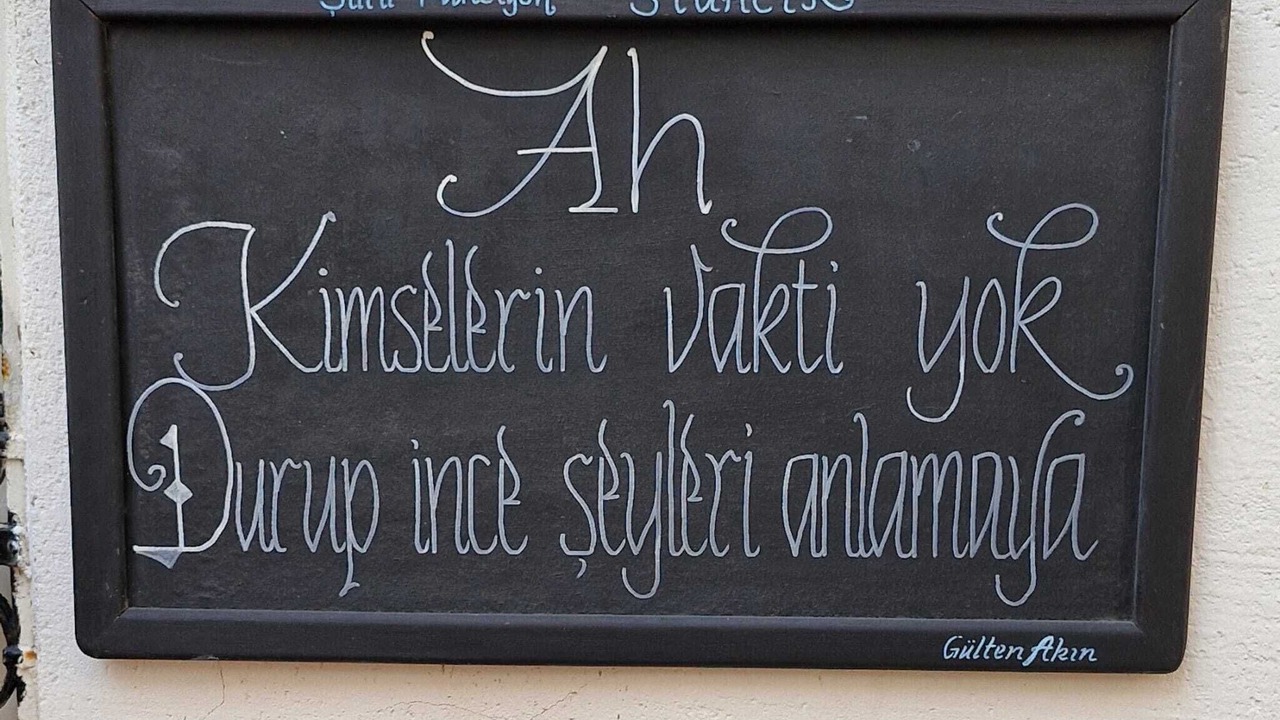 Ah
Kimselerin vakti yok
Durup ince şeyleri anlamaya
Gülten Akın